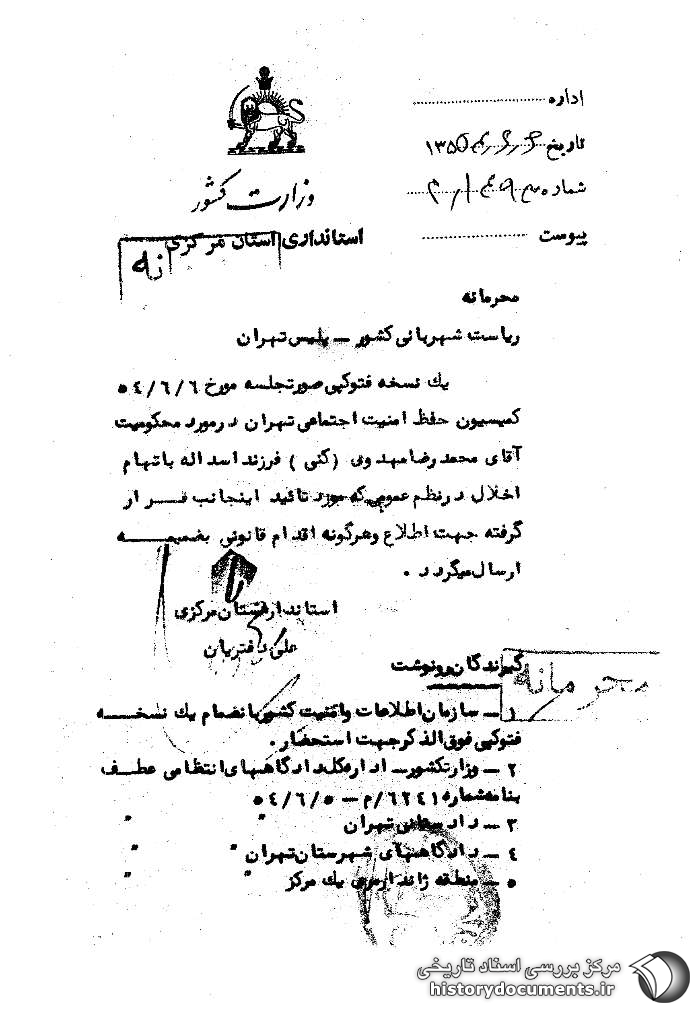 اداره
تاریخ
شماره
پیوست
وزارت کشور
استانداری استان مرکزی
محرمانه
ریاست شهربانی کشور – پلیس تهران
یك نسخه فتوکپی صورتجلسه مورخ ٥٤/٦/٦
کمیسیون حفظ امنیت اجتماعی تهران درمورد محکومیت
آقای محمد رضا مهدوی (کنی) فرزند اسداله باتهام
اخلال درنظم عمومی که مورد تائید اینجانب قرار
گرفته جهت اطلاع وهرگونه اقدام قانونی بضمیمه
ارسال میگردد .
استاندار استان مرکزی
علی دفتریان
گیرندگان رونوشت
محرمانه
۱ – سازمان اطلاعات وامنیت کشور بانضمام یك نسخه
فتوکپی فوق الذکر جهت استحضار .
۲ – وزارتکشور – اداره کل دادگاههای انتظامی عطف
بنامه شماره ٦٢٤١/م – ٥٤/٦/٥
۳ – دادستانی تهران " "
٤ – دادگاههای شهرستان تهران " "
٥ – منطقه ژاندارمری یك مرکز " "
مرکز بررسی اسناد تاریخی
historydocuments.ir